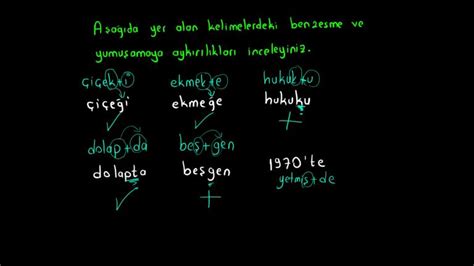 Aşağıda yer alan kelimelerdeki benzeşme ve
yumuşamaya aykırılıkları inceleyiniz.
çiçek+i ekmek+e hukuk+u
çiçeği ekmeğe hukuku
dolap+da beş+gen
dolapta beşgen 1970'te
yetmiş+de